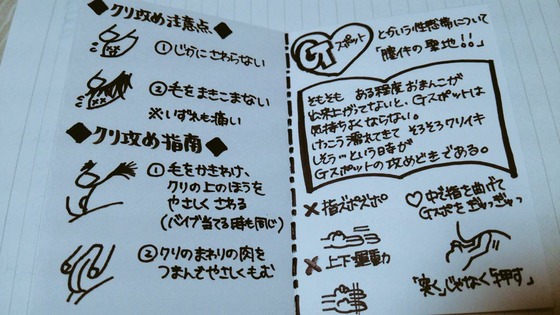 ◆クリ攻め注意点◆
①じかにさわらない
②毛をまきこまない
※いずれも痛い
◆クリ攻め指南◆
①毛をかきわけ、
クリの上のほうを
やさしくさわる
(バイブ当てる時も同じ)
②クリのまわりの肉を
つまんでやさしくもむ
GTスポット
とかいう性感帯について
「膣イキの聖地!!」
そもそも ある程度おまんこが
出来上がってないと、Gスポットは
気持ちよくならない。
けっこう濡れてきて そろそろクリイキ
しそう…という時が
Gスポットの攻めどきである。
×指ズボズボ
×上下運動
♡中で指を曲げて
Gスポをぎゅっぎゅっ
「突く」じゃなく「押す」